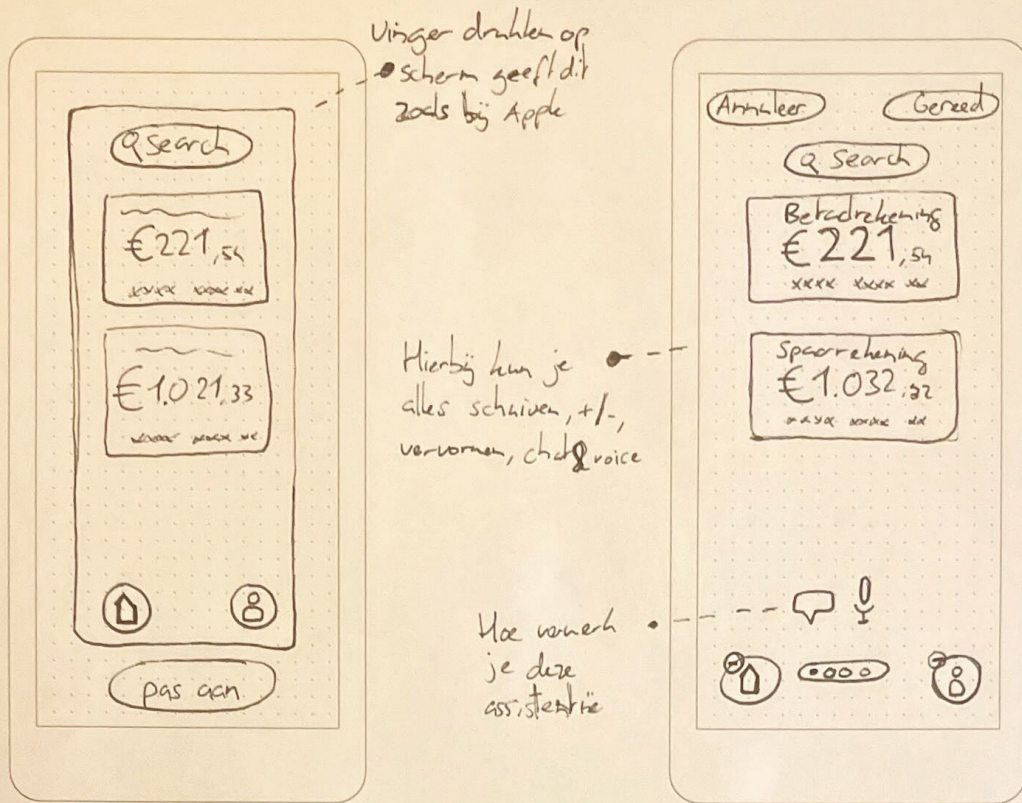 Vinger drukken op
scherm geeft dit
zoals bij Apple
Search
€221,54
xxxx xxxx xx
€1.021,33
xxxx xxxx xx
pas aan
Hierbij kun je
alles schuiven, +/-,
vervormen, chat & voice
Hoe verwerk
je deze
assistentie
Annuleer
Gereed
Search
Betaalrekening
€221,54
xxxx xxxx xx
Spaarrekening
€1.032,22
xxxx xxxx xx